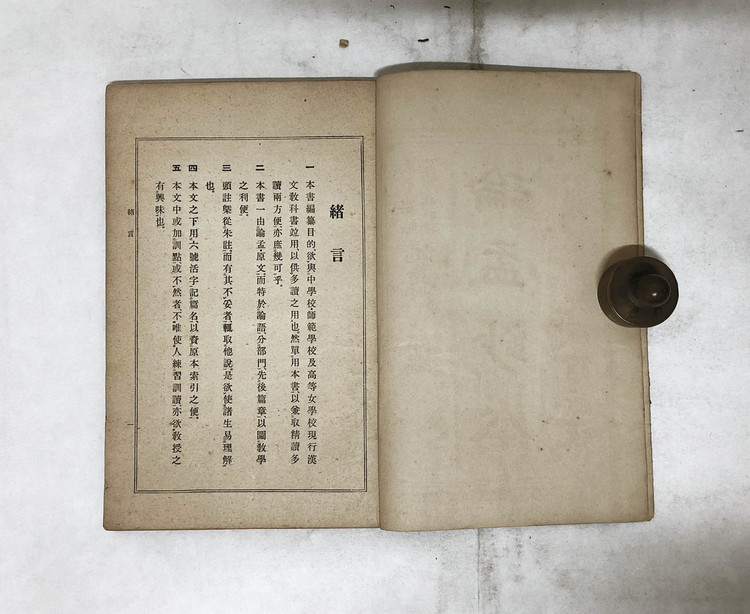 緒言
一 本書編纂目的欲與中學校師範學校及高等女學校現行漢
文敎科書竝用、以供多讀之用也。然單用本書、以兼取精讀多
讀兩方便、亦庶幾可乎。
二 本書一由論孟原文、而特於論語、分部門、先後篇章、以圖敎學
之利便。
三 頭註槩從朱註、而有其不妥者、輒取他說。是欲使諸生易理解
也。
四 本文之下、用六號活字記篇名、以資原本索引之便。
五 本文中、或加訓點、或不然者、不唯使人練習訓讀、亦欲敎授之
有興味也。
緒言
一